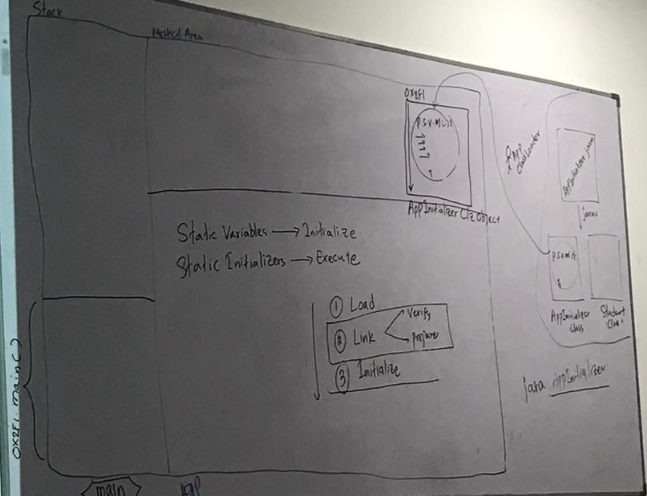 Stack
Method Area
0x2F1
p.s.v.m(){
AppInitializer Clz Object
App
classloader
AppInitializer.java
javac
p.s.v.m(){
AppInitializer
Class
Student
Class
Static Variables → Initialize
Static Initializers → Execute
① Load
② Link
Verify
prepare
③ Initialize
java AppInitializer
0x2F1.main()
main